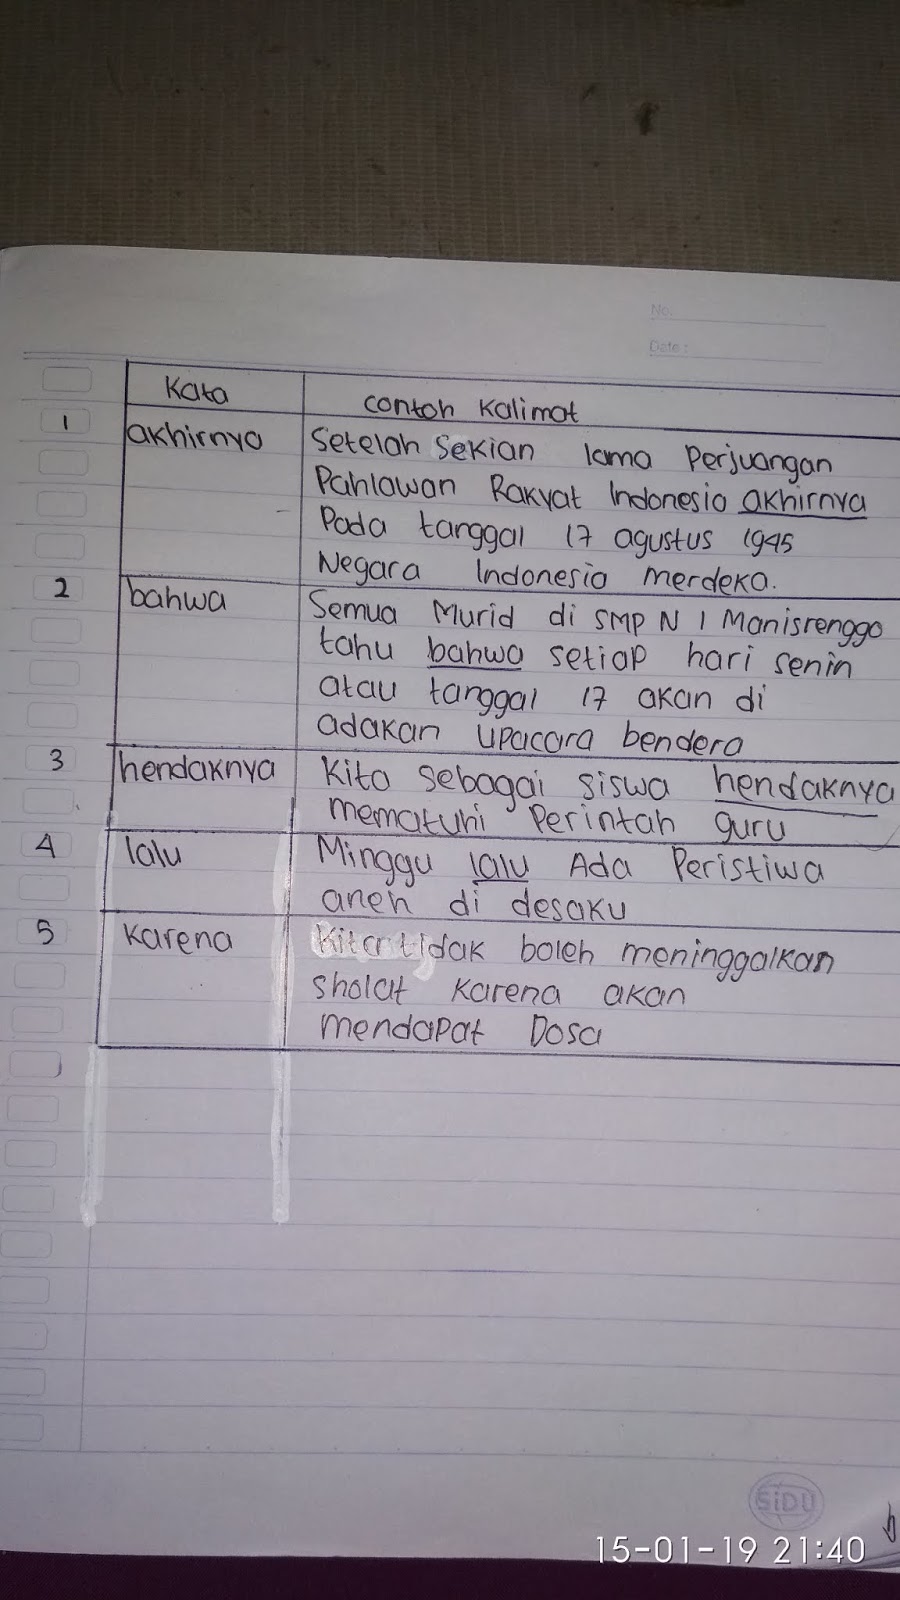 No.
Date :
Kata contoh Kalimat
1 akhirnya Setelah sekian lama Perjuangan
Pahlawan Rakyat Indonesia akhirnya
Pada tanggal 17 agustus 1945
Negara Indonesia merdeka.
2 bahwa Semua Murid di SMP N 1 Manisrenggo
tahu bahwa setiap hari senin
atau tanggal 17 akan di
adakan upacara bendera
3 hendaknya Kita sebagai siswa hendaknya
mematuhi Perintah guru
4 lalu Minggu lalu Ada Peristiwa
aneh di desaku
5 Karena Kita tidak boleh meninggalkan
sholat Karena akan
mendapat Dosa
SiDU
15-01-19 21:40